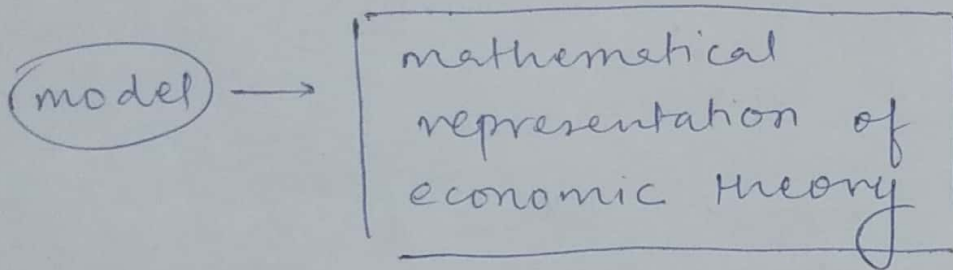 model →
mathematical
representation of
economic theory